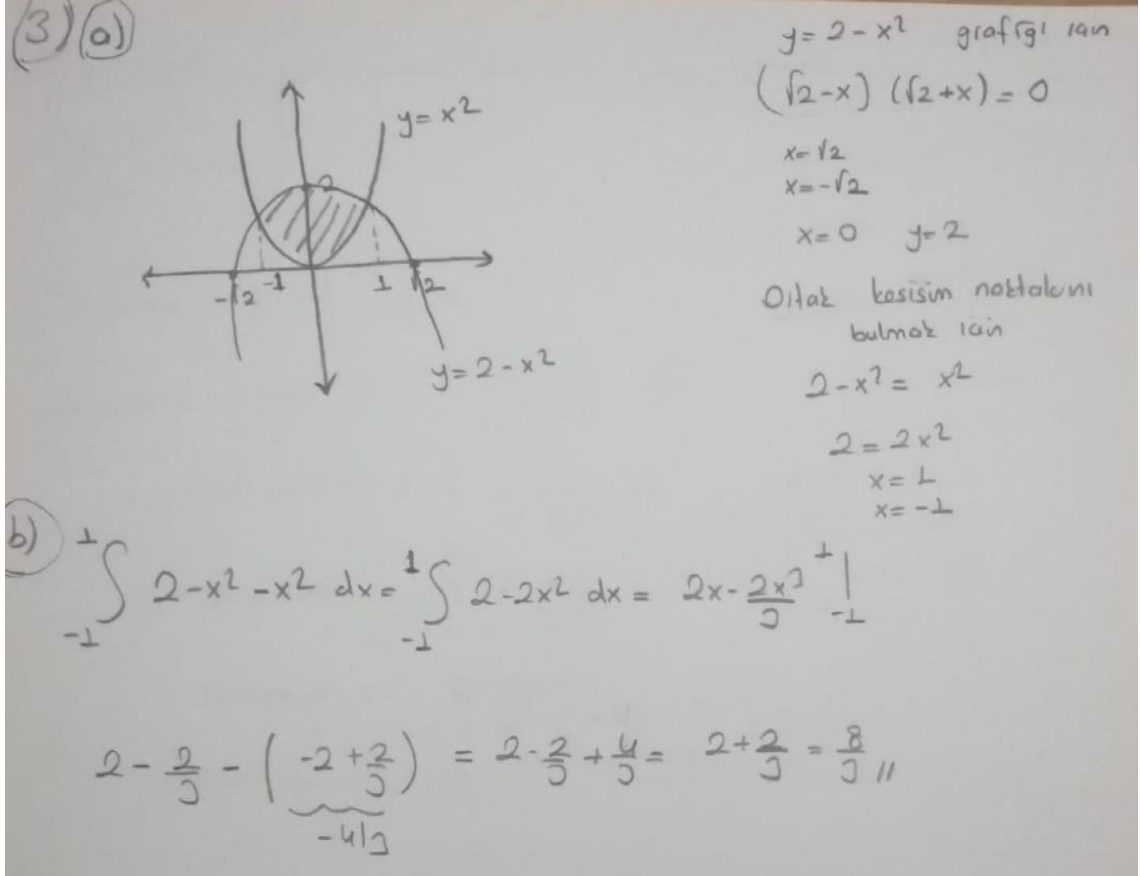 3) a)
y = x²
2
-√2 -1 1 √2
y = 2 - x²
y = 2 - x² grafiği için
(√2-x) (√2+x) = 0
x=√2
x=-√2
x=0 y=2
Ortak kesişim noktalarını
bulmak için
2-x² = x²
2 = 2x²
x=1
x=-1
b) ∫₋₁¹ 2-x²-x² dx = ∫₋₁¹ 2-2x² dx = 2x - 2x³/3 |₋₁¹
2 - 2/3 - (-2 + 2/3) = 2 - 2/3 + 4/3 = 2 + 2/3 = 8/3 //
-4/3